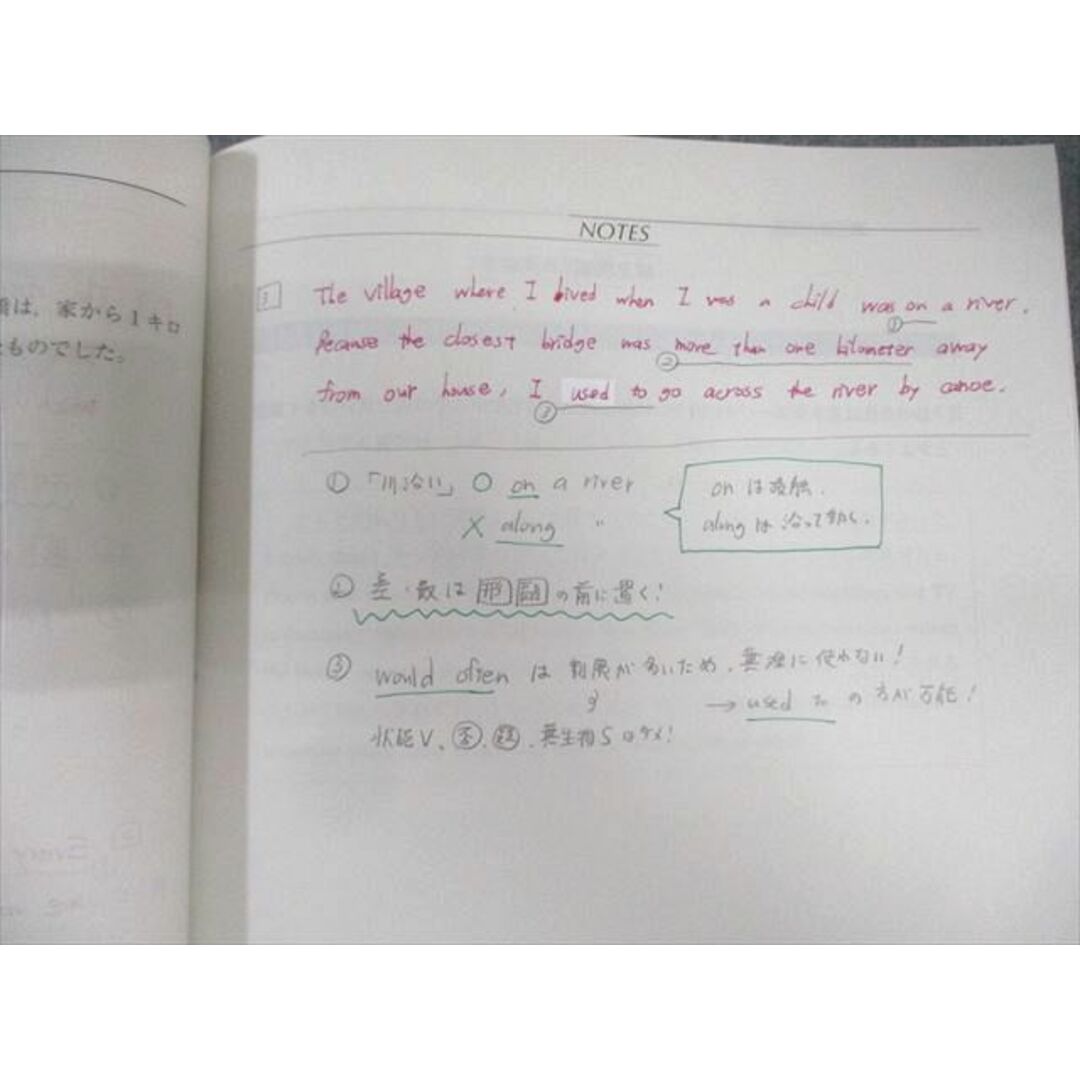 は、家から1キロ
ものでした。
NOTES
3 The village where I lived when I was a child was on a river.
①
Because the closest bridge was more than one kilometer away
②
from our house, I used to go across the river by canoe.
③
① 「川沿い」 ○ on a river
× along 〃
on は接触.
along は 沿って動く.
② 差・数は 形 副 の前に置く!
③ would often は 制限が多いため、無理に使わない!
→ used to の方が万能!
状態V、否、疑、無生物Sはダメ!